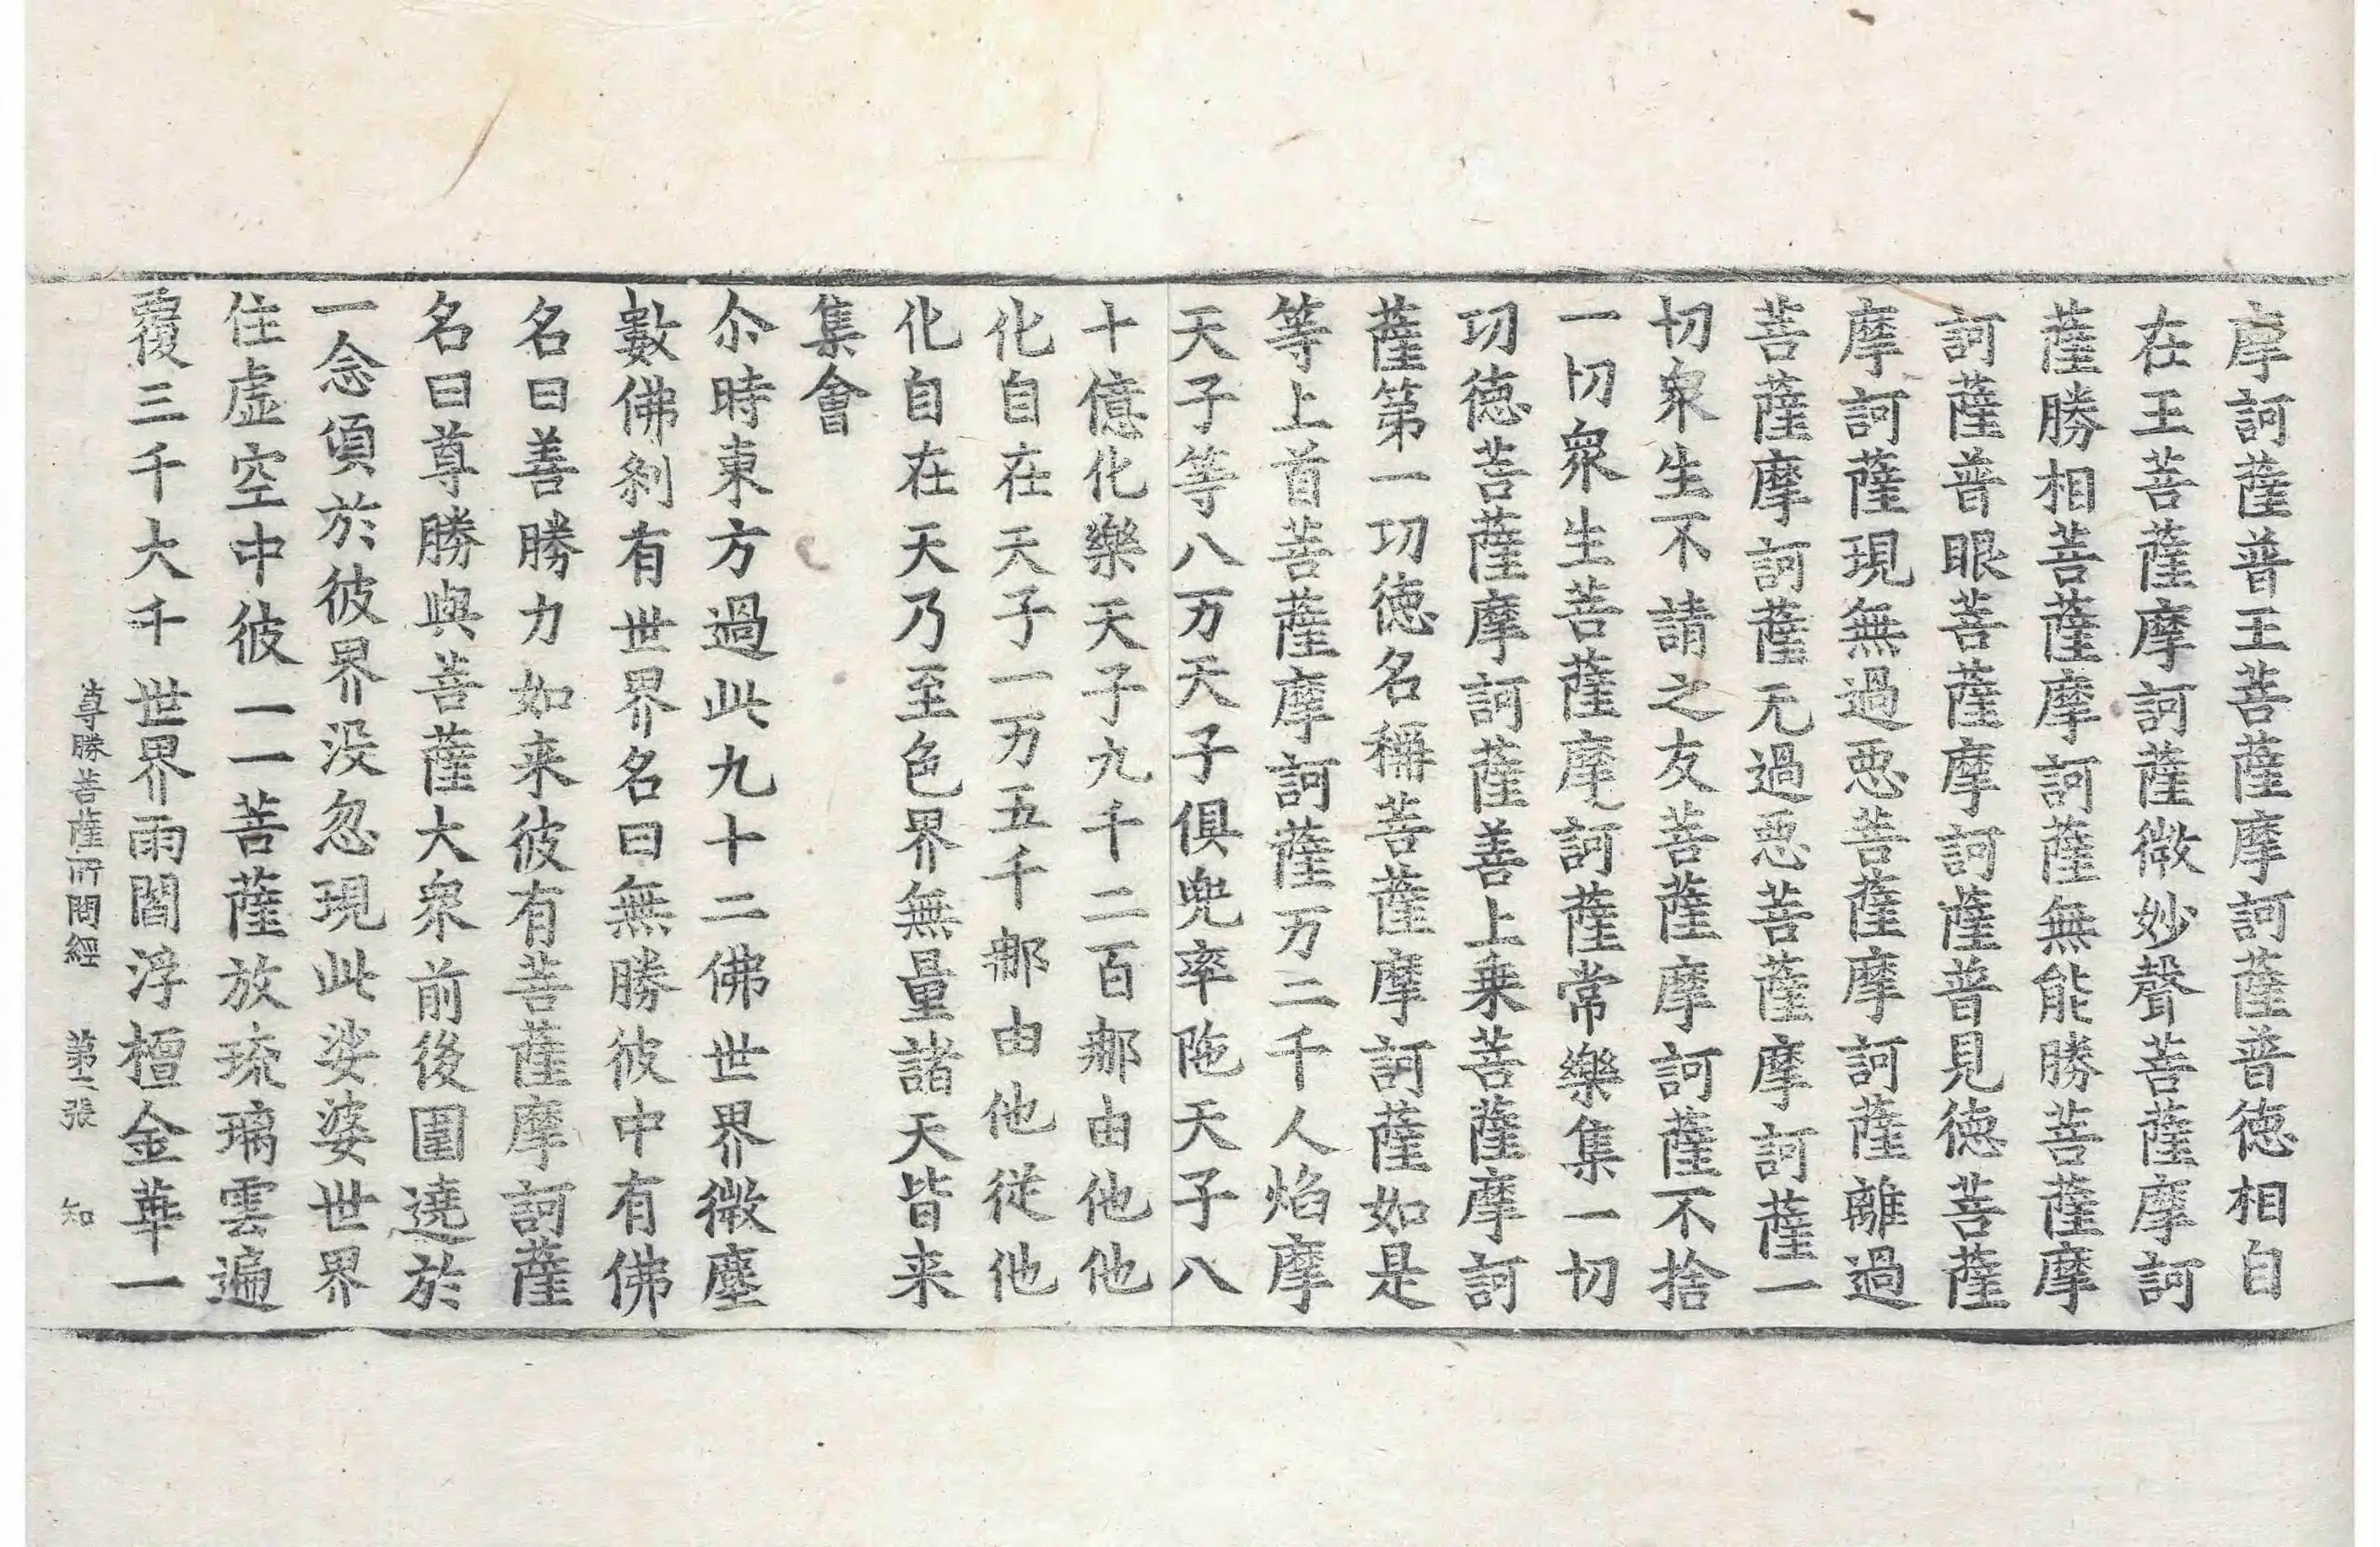 摩訶薩普王菩薩摩訶薩普徳相自
在王菩薩摩訶薩微妙聲菩薩摩訶
薩勝相菩薩摩訶薩無能勝菩薩摩
訶薩普眼菩薩摩訶薩普見徳菩薩
摩訶薩現無過惡菩薩摩訶薩離過
菩薩摩訶薩无過惡菩薩摩訶薩一
切衆生不請之友菩薩摩訶薩不捨
一切衆生菩薩摩訶薩常樂集一切
功徳菩薩摩訶薩善上乗菩薩摩訶
薩第一功徳名稱菩薩摩訶薩如是
等上首菩薩摩訶薩万二千人焰摩
天子等八万天子俱兠率陁天子八
十億化樂天子九千二百那由他他
化自在天子一万五千那由他從他
化自在天乃至色界無量諸天皆来
集會
尒時東方過此九十二佛世界微塵
數佛刹有世界名曰無勝彼中有佛
名曰善勝力如来彼有菩薩摩訶薩
名曰尊勝與菩薩大衆前後圍遶於
一念頃於彼界没忽現此娑婆世界
住虚空中彼一一菩薩放琉璃雲遍
覆三千大千世界雨閻浮檀金華一
尊勝菩薩所問經 第二張 知